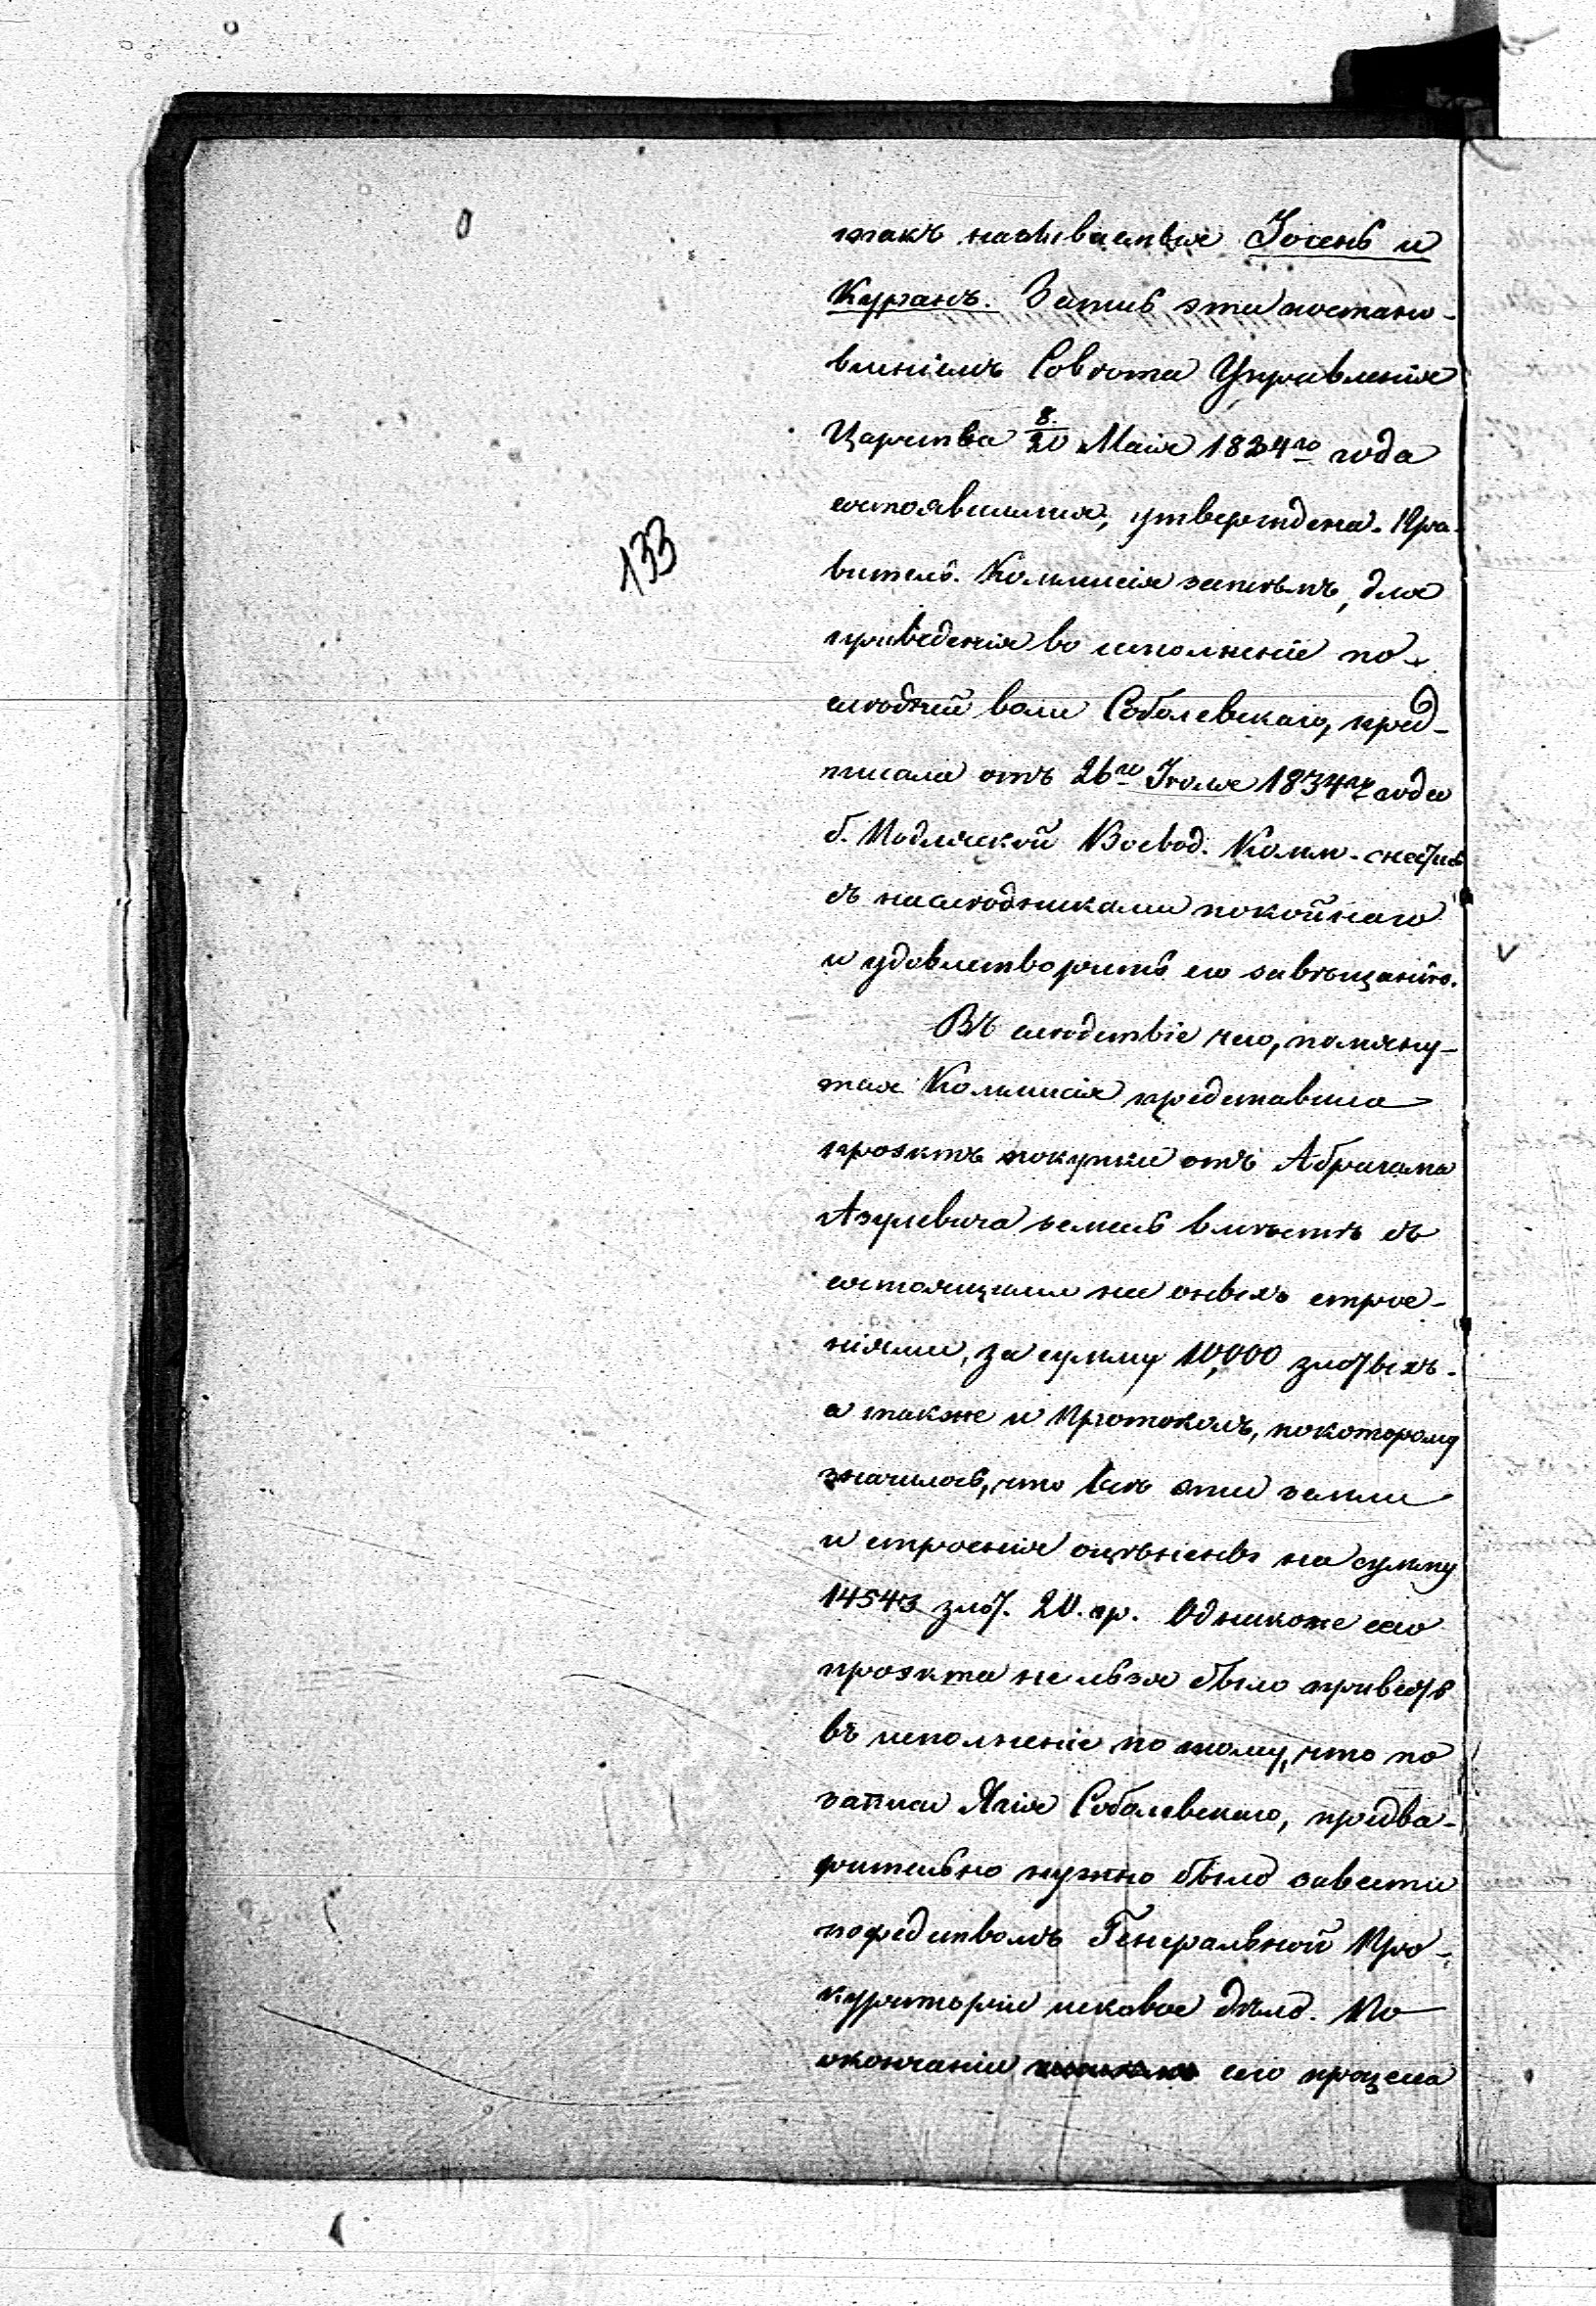 такъ называемые Iосень и
Курганъ. Запись эта постано-
вленіемъ Совѣта Управленія
Царства 8/20 Маія 1834го года
состоявшимся, утверждена. Пра-
вител. Коммисія затѣмъ, для
приведенія во исполненіе по-
слѣдней воли Соболевскаго, пред-
писала отъ 26го Іюля 1834го года
б. Подляской Воевод. Комм. снестись
съ наслѣдниками покойнаго
и удовлетворить его завѣщанію.
Въ слѣдствіе чего, помяну-
тая Коммисія представила
проэктъ покупки отъ Абрагама
Азулевича земель вмѣстѣ съ
состоящими на оныхъ строе-
ніями, за сумму 10,000 злотыхъ.
а также и Протоколъ, по которому
значилось, что всѣ эти земли
и строенія оцѣнены на сумму
14543 злот. 20. гр. Однакоже сего
проэкта нельзя было привесть
въ исполненіе по тому, что по
записи Якія Соболевскаго, предва-
рительно нужно было завести
посредствомъ Генеральной Про-
кураторіи исковое дѣло. По
окончаніи сего процеса
133